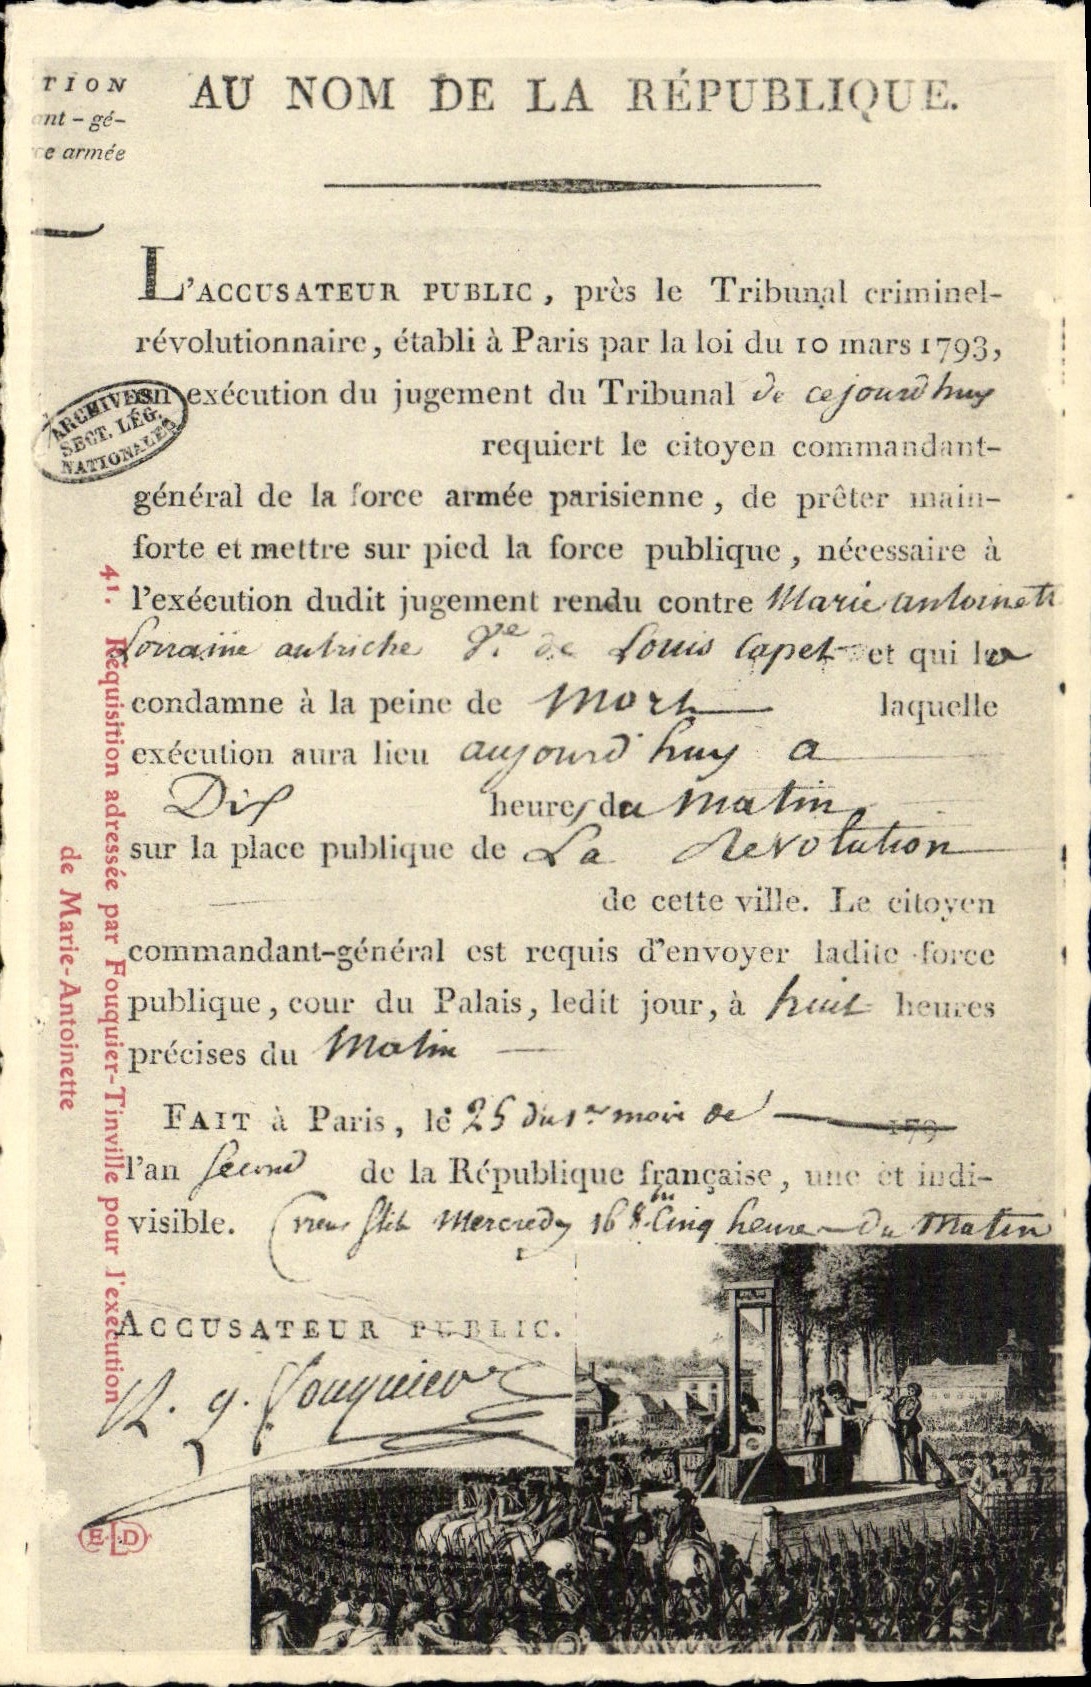 TION
ant-gé-
ce armée
AU NOM DE LA RÉPUBLIQUE.
L'ACCUSATEUR PUBLIC, près le Tribunal criminel-
révolutionnaire, établi à Paris par la loi du 10 mars 1793,
en exécution du jugement du Tribunal de cejourdhuy
requiert le citoyen commandant-
général de la force armée parisienne, de prêter main-
forte et mettre sur pied la force publique, nécessaire à
l'exécution dudit jugement rendu contre Marie antoinette
Lorraine autriche Ve de Louis Capet et qui la
condamne à la peine de Mort laquelle
exécution aura lieu aujourd'huy a
Dix heures du Matin
sur la place publique de La Revolution
de cette ville. Le citoyen
commandant-général est requis d'envoyer ladite force
publique, cour du Palais, ledit jour, à huit heures
précises du Matin
FAIT à Paris, le 25 du 1er mois de 179
l'an second de la République française, une et indi-
visible. Mercredy 16 8bre Cinq heure du Matin
ACCUSATEUR PUBLIC.
A. q. Fouquier
ARCHIVES
SECT. LÉG.
NATIONALES
41. Réquisition adressée par Fouquier-Tinville pour l'exécution
de Marie-Antoinette
ELD